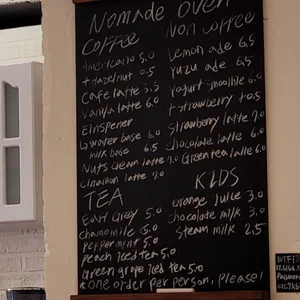 Nomade Oven
COFFEE
Americano 5.0
+ Hazelnut 0.5
Cafe latte 5.5
Vanilla latte 6.0
Einspener
Water base 6.0
milk base 6.5
Nuts cream latte 7.0
Cinnamon latte 7.0
TEA
Earl Grey 5.0
Chamomile 5.0
peppermint 5.0
peach iced tea 5.0
Green grape Iced tea 5.0
Non coffee
Lemon ade 6.5
Yuzu ade 6.5
Yogurt smoothie 6.0
+ strawberry +0.5
Strawberry latte 7.0
chocolate latte 6.0
Green tea latte 6.0
KIDS
orange Juice 3.0
chocolate milk 3.0
Steam milk 2.5
*One order per person, please!
WIFI